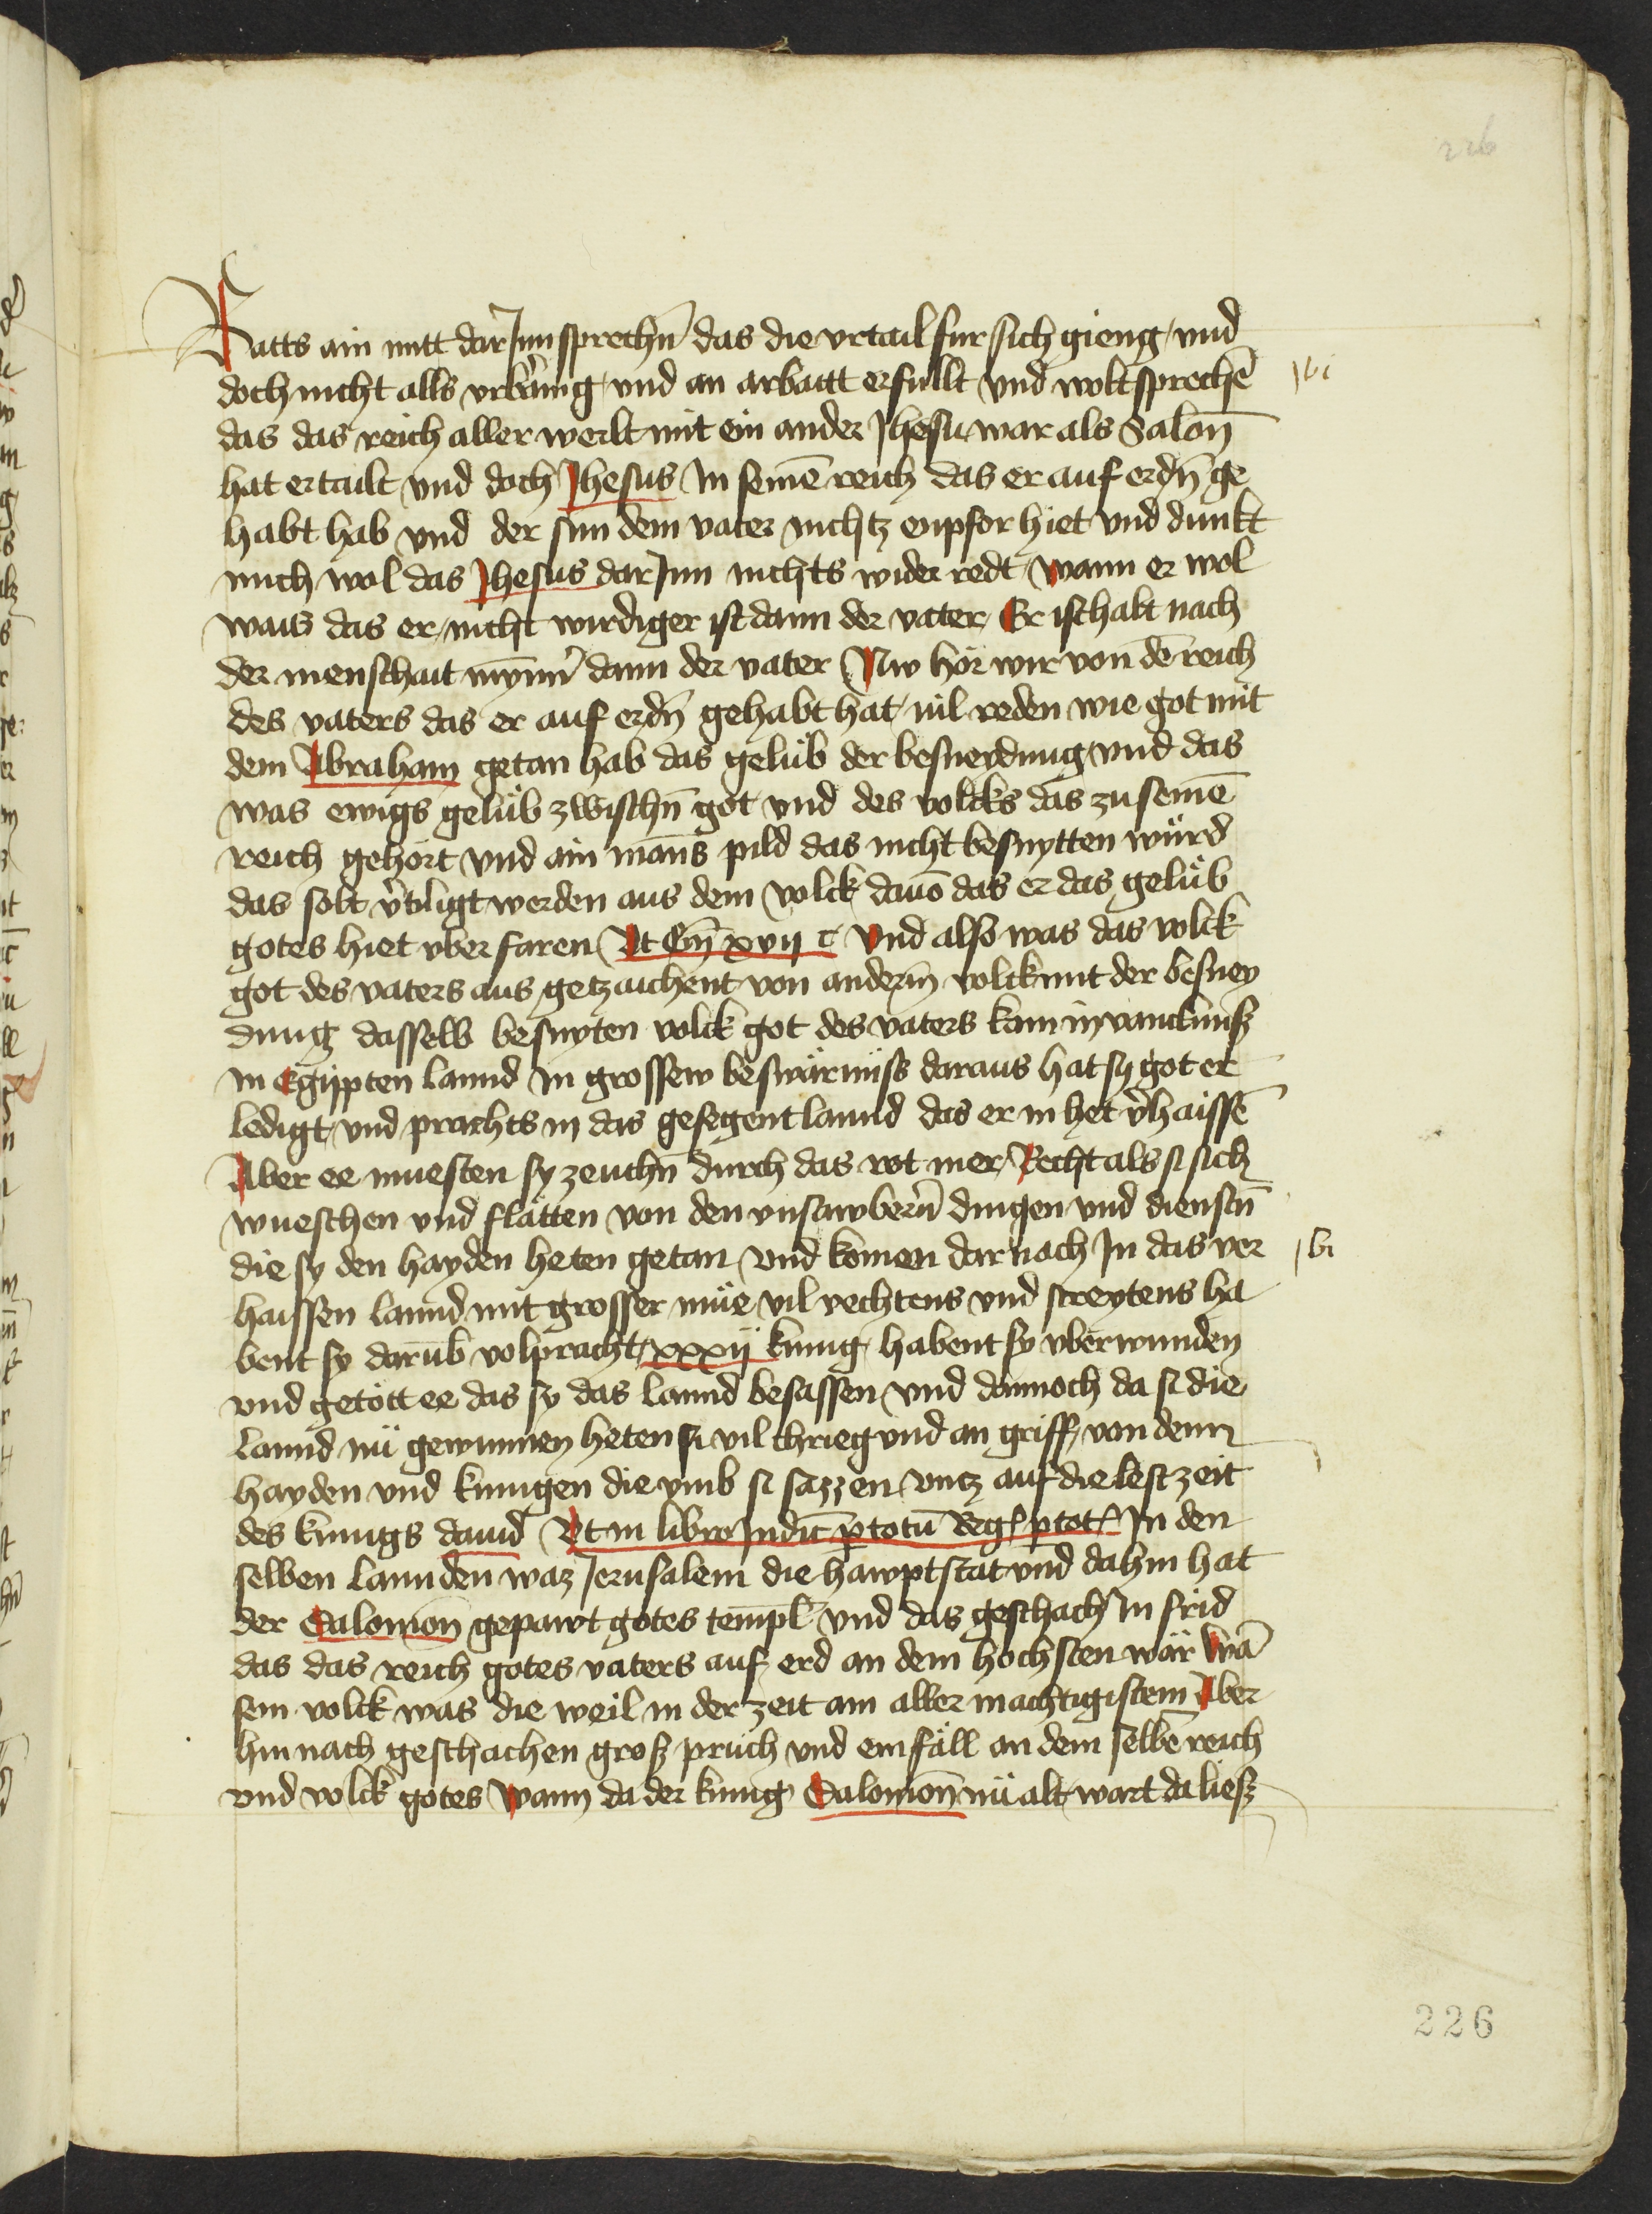 226
Ratts ain mitt dar Jnn sprechn̄ das die vrtail fur sich gieng vnd
doch nicht alls vrbäring vnd an arbaitt erfullt vnd wolt sprechē
das das reich aller werlt mit ein ander Jhesu war als Salon̄
hat ertailt vnd doch Jhesus In seinē reich das er auf erdn̄ ge
habt hab vnd der sun dem vater nichtz enpfor hiet vnd dunkt
mich wol das Jhesus dar Jnn nichts wider redt wann er wol
wais das er nicht wirdiger ist dann der vater Er ist halt nach
der menschait mynn̄ dann der vater Nw hör wir von dē reich
des vaters das er auf erdn̄ gehabt hat vil reden wie got mit
dem Abraham getan hab das gelüb der besneydung vnd das
was ewigs gelüb zwischn̄ got vnd des volcks das zu seinē
reich gehört vnd ain mans pild das nicht besnytten würd
das solt v̄tiligt werden aus dem volck dauō das er das gelüb
gotes hiet vber faren Vt Gen̄ xvij c Vnd also was das volck
got des vaters aus getzaichent von anderm̄ volck mit der besney
dung dasselb besnyten volck got des vaters kam in vancknusz
in Egippten lannd in grossew beswärnüss daraus hat sy got er
ledigt vnd prachts in das gesegent lannd das er in het v̄haissē
Aber ee muesten sy zeuchn̄ durch das rot mer Recht als si sich
wueschen vnd flätten von den vnsawbern̄ dingen vnd dienstn̄
die sy den hayden heten getan vnd komen dar nach In das ver
haissen lannd mit grosser müe vil vechtens vnd streytens ha
bent sy darūb volpracht xxxij kunig habent sy vberwunden
vnd getött ee das sy das lannd besassen vnd dannoch da si die
lannd nü gewunnen heten si vil chrieg vnd an griff von denn
hayden vnd kunigen die vmb si sazzen vntz auf die lest zeit
des kunigs dauid Vt in libro Judic̄ p totū Reg p tot In den
selben lannden waz Jerusalem die hawptstat vnd dahin hat
der Salomon̄ gepawt gotes templ vnd das geschach in frid
das das reich gotes vaters auf erd an dem hochsten wär wā
sein volck was die weil in der zeit am aller machtigisten Aber
hin nach geschachen grosz prüch vnd ein fäll an dem selbē reich
vnd volck gotes wann da der kunig Salomon̄ nü alt wart da liesz
226